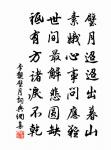 璧月迢迢出暮山
素娥心事問應難
世間最解悲圓缺
祇有方諸淚不乾
李覯璧月詞典網集